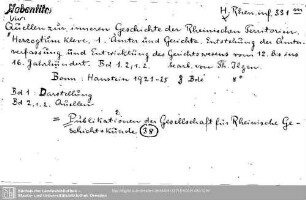 H. Rhen. inf. 331 m
Quellen zur inneren Geschichte der Rheinischen Territorien.
Herzogtum Kleve. 1. Ämter und Gerichte. Entstehung der Ämter-
verfassung und Entwicklung des Gerichtswesens vom 12. bis ins
16. Jahrhundert. Bd 1.2,1.2. bearb. von Th. Ilgen.
Bonn: Hanstein 1921-25 3 Bde 8°
Bd 1. Darstellung
Bd 2,1.2. Quellen
= Publikationen der Gesellschaft für Rheinische Ge-
schichtskunde (38)